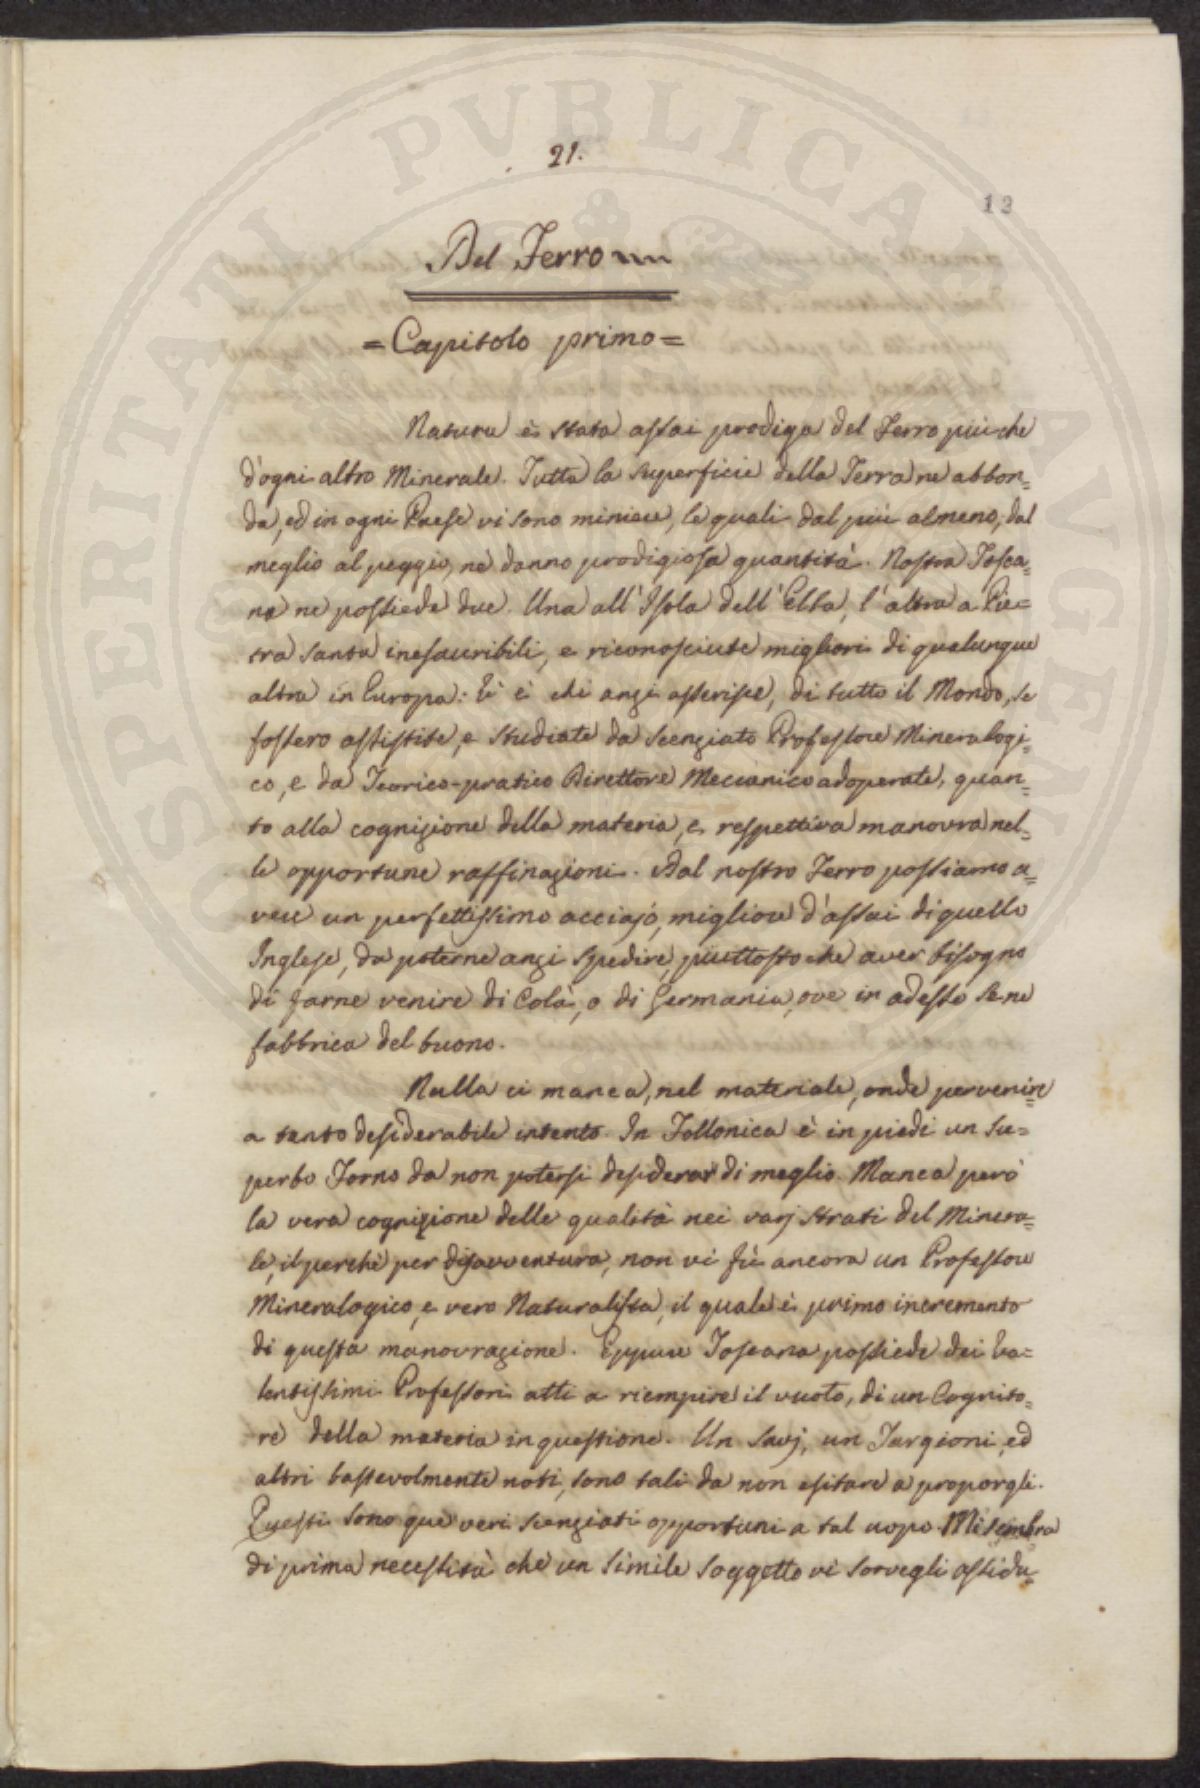 21.
13
Del Ferro
=Capitolo primo=
Natura è stata assai prodiga del Ferro più che
d'ogni altro Minerale. Tutta la superficie della Terra ne abbon=
da, ed in ogni Paese vi sono miniere, le quali dal più almeno, dal
meglio al peggio, ne danno prodigiosa quantità. Nostra Tosca=
na ne possiede due. Una all'Isola dell'Elba, l'altra a Pie=
tra santa inesauribili, e riconosciute migliori di qualunque
altra in Europa: Vi è chi anzi asserisce, di tutto il Mondo, se
fossero assistite, e studiate da scenziato Professore Mineralogi=
co, e da Teorico-pratico Direttore Meccanico adoperate, quan=
to alla cognizione della materia, e respettiva manovra nel=
le opportune raffinazioni. Dal nostro Ferro possiamo a=
vere un perfettissimo acciajo, migliore d'assai di quello
Inglese, da poterne anzi spedire, piuttosto che aver bisogno
di farne venire di Colà, o di Germania, ove in adesso se ne
fabbrica del buono.
Nulla ci manca, nel materiale, onde pervenire
a tanto desiderabile intento. In Follonica è in piedi un su=
perbo Forno da non potersi desiderar di meglio. Manca però
la vera cognizione delle qualità nei varj strati del Minera=
le, il perchè per disavventura, non vi fù ancora un Professore
Mineralogico, e vero Naturalista, il quale è primo incremento
di questa manovrazione. Eppure Toscana possiede dei Va=
lentissimi Professori atti a riempire il vuoto, di un Cognito=
re della materia in questione. Un Savj, un Targioni, ed
altri bastevolmente noti, sono tali da non esitare a proporgli.
Questi sono que' veri scenziati opportuni a tal uopo. Mi sembra
di prima necessità che un simile soggetto vi sorvegli assidu=
SPERITATI PVBLICAE AVGEN